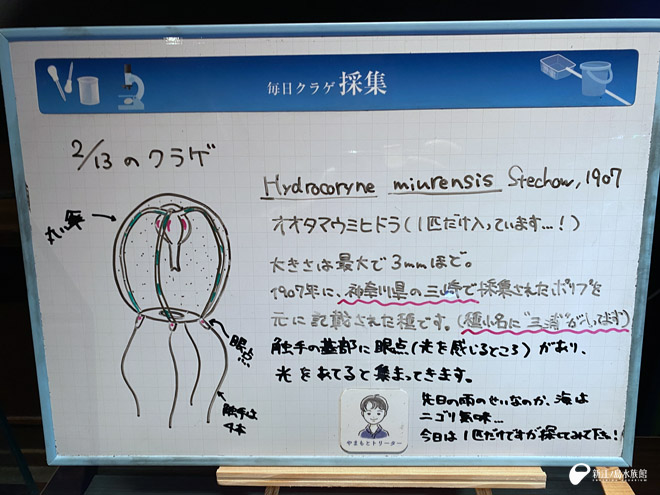 毎日クラゲ 採集
2/13のクラゲ
Hydrocoryne miurensis Stechow, 1907
オオタマウミヒドラ(1匹だけ入っています…!)
大きさは最大で3mmほど。
1907年に、神奈川県の三崎で採集されたポリプを
元に記載された種です。(種小名に"三浦"が入ってます)
触手の基部に眼点(光を感じるところ)があり、
光をあてると集まってきます。
先日の雨のせいなのか、海は
ニゴリ気味…
今日は1匹だけですが探してみて下さい!
丸い傘
眼点
触手は
4本
やまもとトリーター
新江ノ島水族館